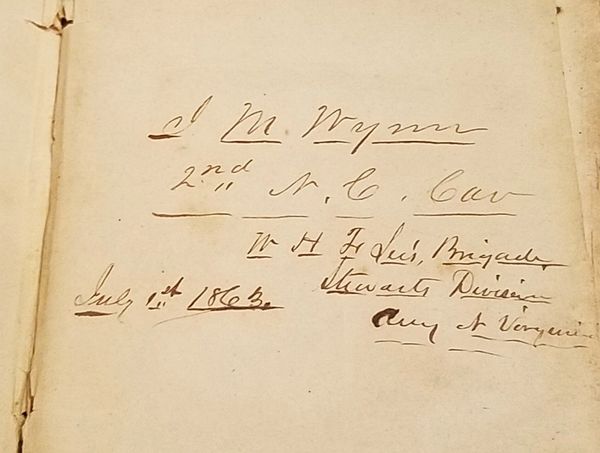 J M Wynn
2nd N. C. Cav
W H F Lee's, Brigade,
Stewarts Division
July 1st 1863.
Army N Virginia